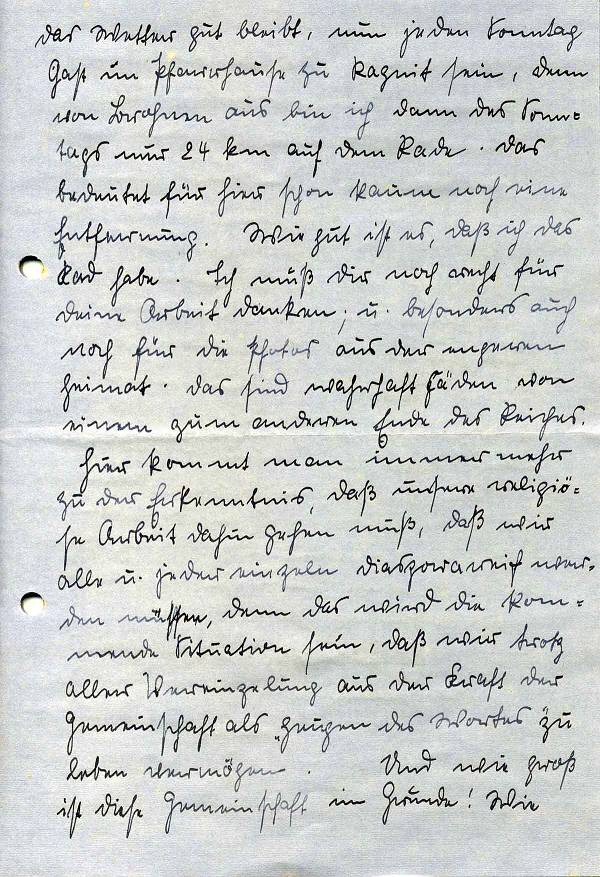 das Wetter gut bleibt, nun jeden Sonntag
Gast im Pfarrhause zu Ragnit sein, denn
von aus bin ich dann des Sonn=
tags nur 24 km auf dem Rade. Das
bedeutet für hier schon kaum noch eine
Entfernung. Wie gut ist es, daß ich das
Rad habe. Ich muß Dir noch recht für
deine Arbeit danken; u. besonders auch
noch für die Photos aus der engeren
Heimat. Das sind wahrhaft Fäden von
einem zum anderen Ende des Reiches.
Hier kommt man immer mehr
zu der Erkenntnis, daß unsere religiö=
se Arbeit dahin gehen muß, daß wir
alle u. jeder einzeln diasporareif wer=
den müssen, denn das wird die kom=
mende Situation sein, daß wir trotz
aller Vereinzelung aus der Kraft der
Gemeinschaft als „Zeugen des Wortes zu
leben vermögen. Und wie groß
ist diese Gemeinschaft im Grunde! Wie